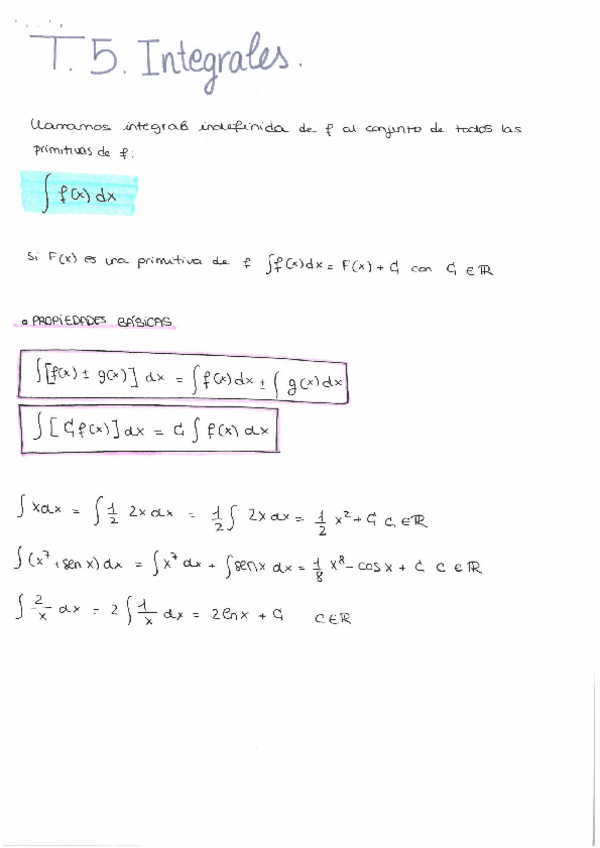 T. 5. Integrales.
Llamamos integral indefinida de f al conjunto de todos las
primitivas de f:
∫ f(x) dx
Si F(x) es una primitiva de f ∫f(x)dx = F(x) + C con C ∈ ℝ
• PROPIEDADES BÁSICAS
∫[f(x) ± g(x)] dx = ∫f(x)dx ± ∫g(x)dx
∫[Cf(x)]dx = C ∫ f(x) dx
∫ xdx = ∫ 1/2 2xdx = 1/2 ∫ 2xdx = 1/2 x² + C C ∈ ℝ
∫(x⁷ + sen x) dx = ∫x⁷ dx + ∫sen x dx = 1/8 x⁸ - cos x + C C ∈ ℝ
∫ 2/x dx = 2 ∫ 1/x dx = 2lnx + C C∈ℝ